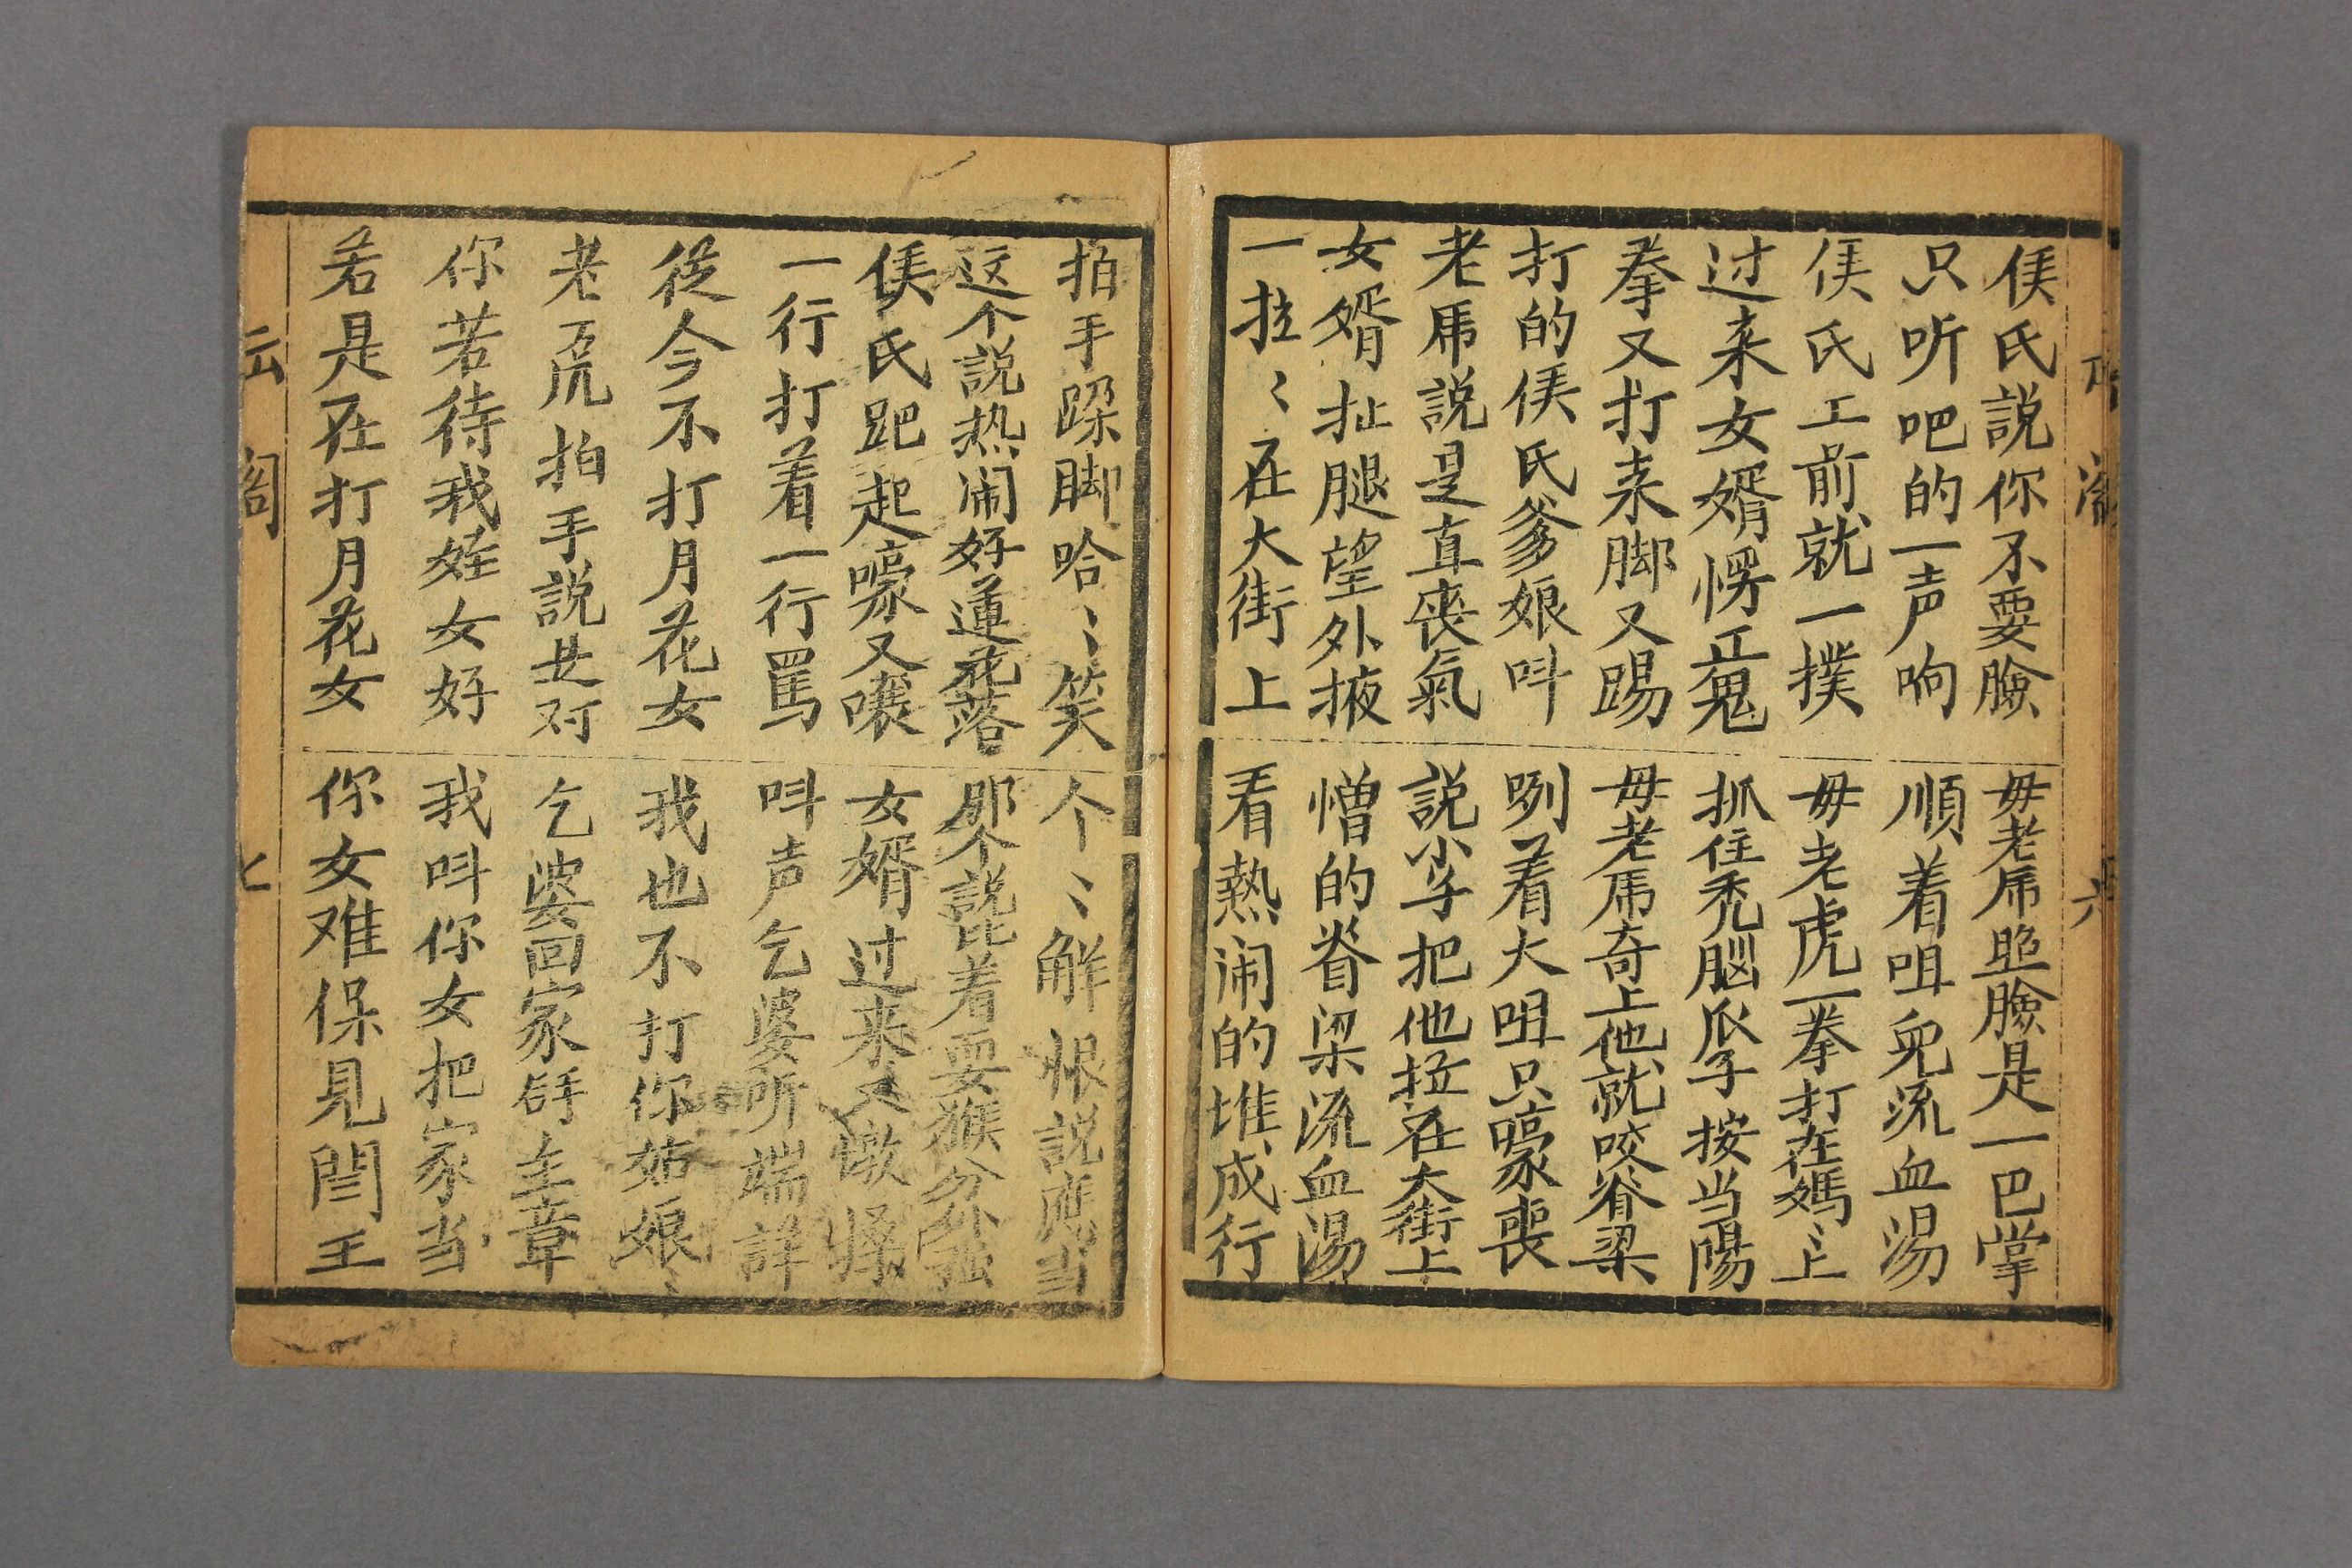 侯氏説你不要臉 毋老虎照臉是一巴掌
只听吧的一声响 順着咀兒流血湯
侯氏上前就一撲 毋老虎一拳打在媽〻上
过来女婿愣㱏鬼 抓住秃腦瓜子按当陽
拳又打来脚又踢 毋老虎奇上他就咬脊梁
打的侯氏爹娘叫 咧着大咀只嚎喪
老虎説是直喪氣 説小子把他拉在大街上
女婿扯腿望外掖 憎的脊梁流血湯
一拉〻在大街上 看熱闹的堆成行
拍手跺脚哈〻笑 个〻解恨説應当
这个説热闹好蓮花落 那个説比着耍猴分外强
侯氏跁起嚎又嚷 女婿过来又墩
一行打着一行罵 叫声乞婆听端詳
從今不打月花女 我也不打你姑娘〻
老虎拍手説是对 乞婆回家拿主章
你若待我姪女好 我叫你女把家当
若是在打月花女 你女难保見閻王
云阁 七
六